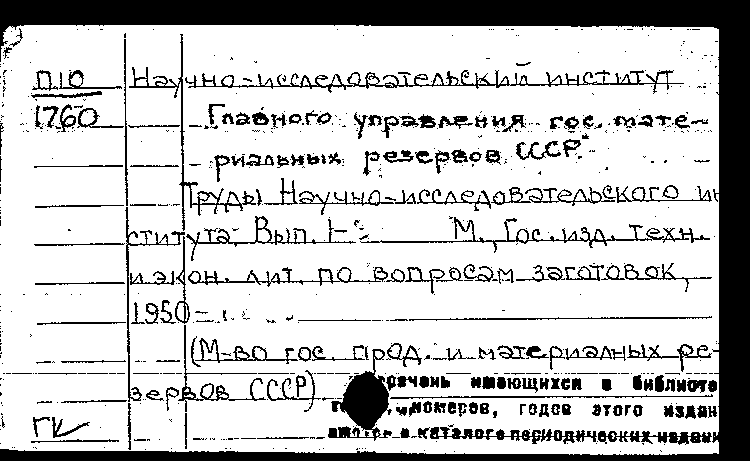 П10 Научно-исследовательский институт
1760 Главного управления гос. мате-
риальных резервов СССР.
Труды Научно-исследовательского ин
ститута. Вып. 1- М., Гос. изд. техн.
и экон. лит. по вопросам заготовок,
1950-
(М-во гос. прод. и материальных ре-
зервов СССР)
имеющихся в библиоте
номеров, годов этого издан
в каталоге периодических издани
ГК